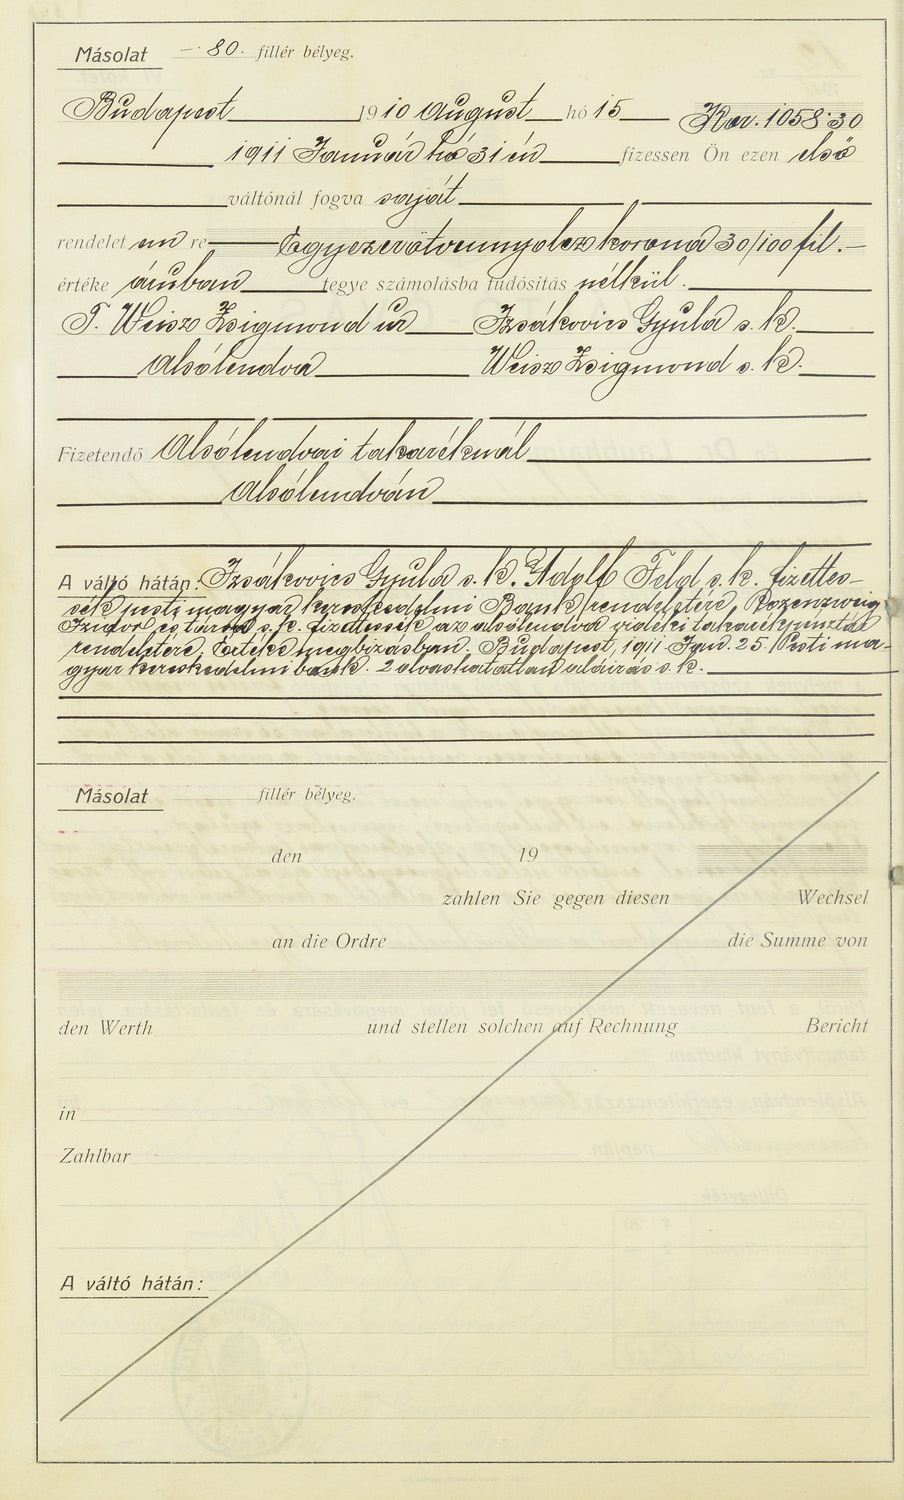 Másolat — 80. fillér bélyeg.
Budapest 1910 August hó 15 Kor. 1058·30
1911 Január hó 31 én fizessen Ön ezen első
váltónál fogva saját
rendelet em re Egyezerötvennyolcz korona 30/100 fil. —
értéke áruban tegye számolásba tudósitás nélkül.
T. Weisz Zsigmond úr Izsákovics Gyula s. k.
Alsólendva Weisz Zsigmond s. k.
Fizetendő Alsólendvai takaréknál
Alsólendván
A váltó hátán: Izsákovics Gyula s. k. Adolf Feld s. k. fizettes-
sék pesti magyar kereskedelmi Bank rendeletére, Rozenzweig
Izidor és társa s. k. fizettessék az alsólendva vidéki takarékpénztár
rendeletére. Értéke megbizásban. Budapest, 1911 Jan. 25. Pesti ma-
gyar kereskedelmi bank. 2 olvashatatlan aláirás s. k.
Másolat fillér bélyeg.
den 19
zahlen Sie gegen diesen Wechsel
an die Ordre die Summe von
den Werth und stellen solchen auf Rechnung Bericht
in
Zahlbar
A váltó hátán: